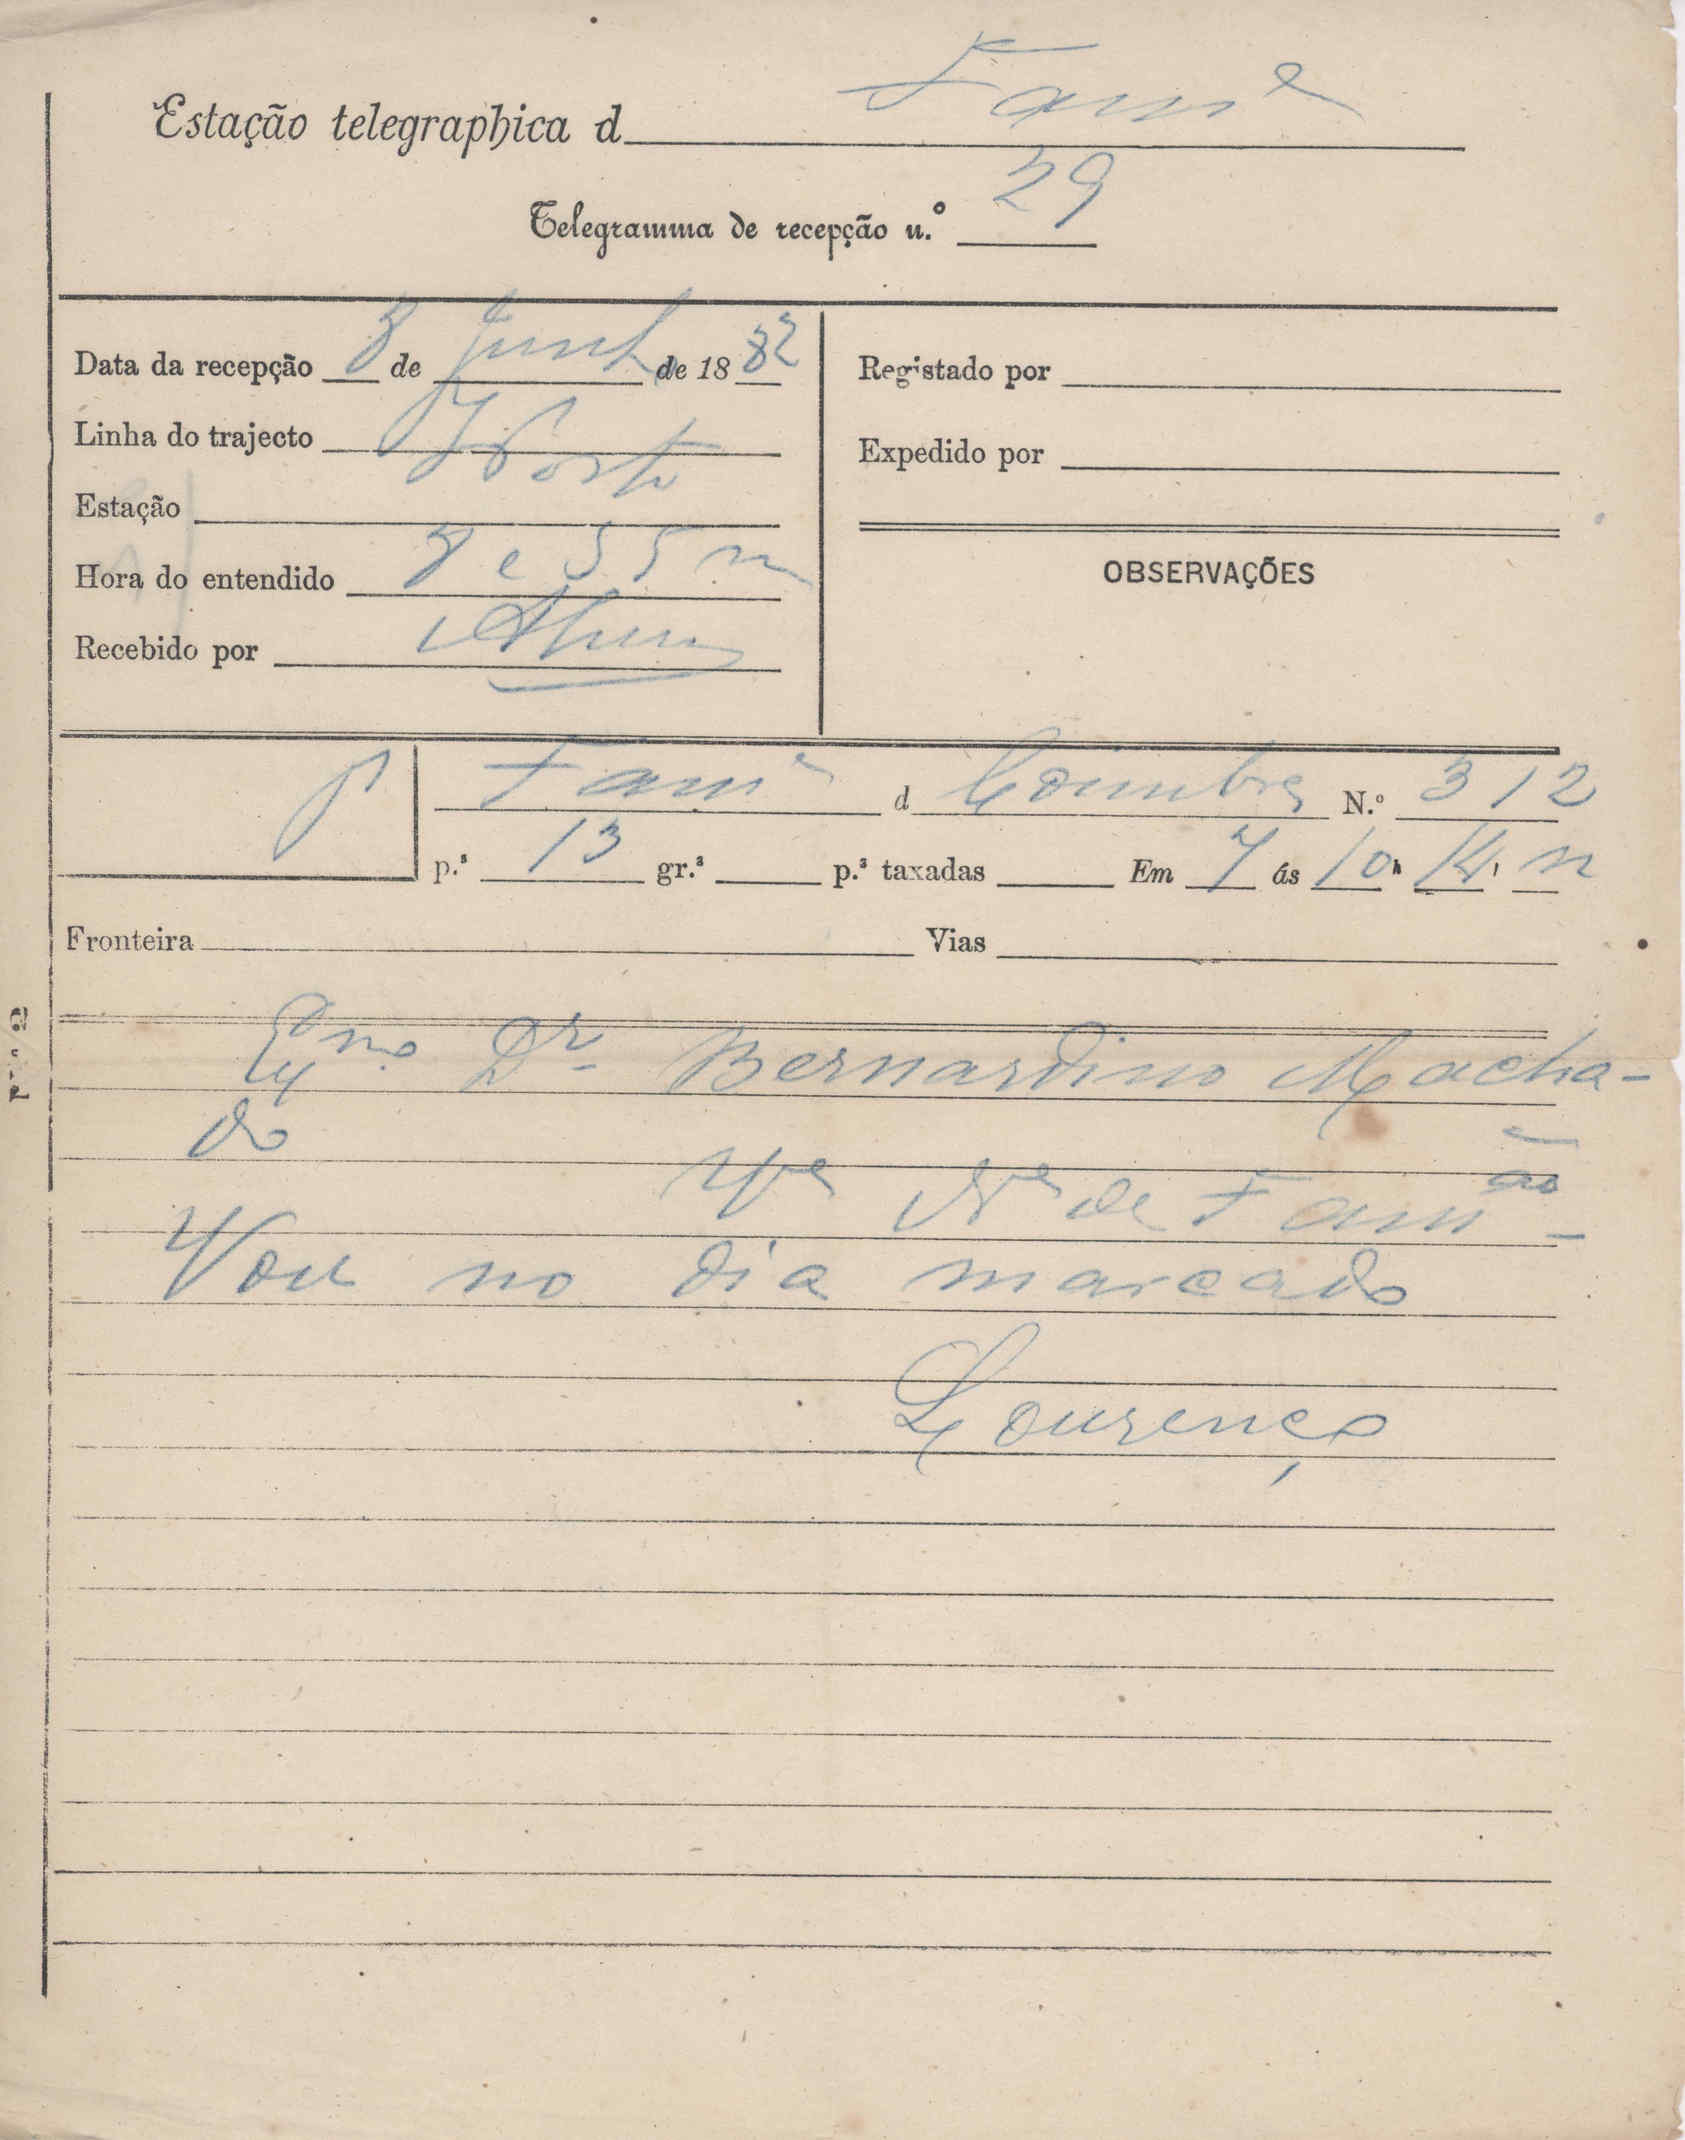 Estação telegraphica d Fam.e
Telegramma de recepção n.º 29
Data da recepção 8 de Junho de 1882
Linha do trajecto
Porto
Estação
Hora do entendido 8 e 55 m
Recebido por
Registado por
Expedido por
OBSERVAÇÕES
P Fam.e d Coimbra N.º 312
p.ª 13 gr.ª p.ª taxadas Em 7 ás 10h 14' n
Fronteira Vias
Exmo Dr. Bernardino Macha-
do
Va Na de Famão
Vou no dia marcado
Lourenço